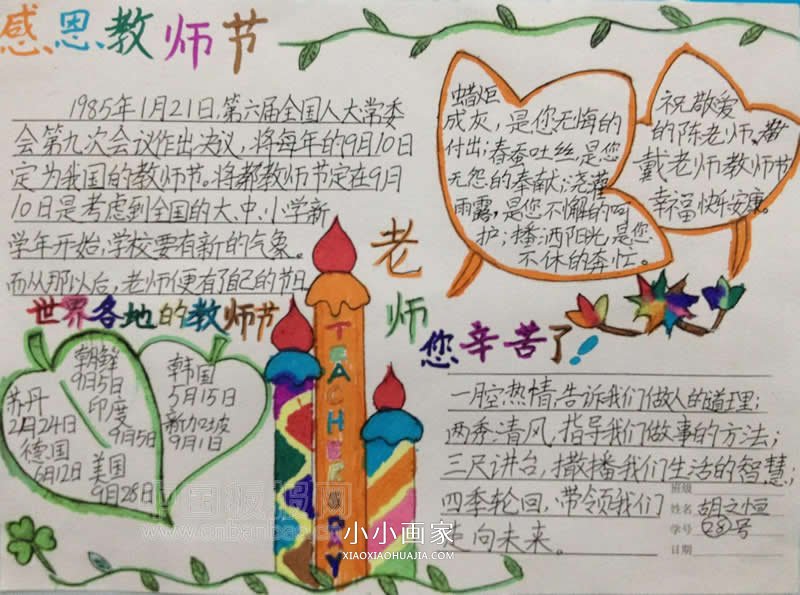 感恩教师节
1985年1月21日,第六届全国人大常委
会第九次会议作出决议,将每年的9月10日
定为我国的教师节。将都教师节定在9月
10日是考虑到全国的大、中、小学新
学年开始,学校要有新的气象。
而从那以后,老师便有了自己的节日
蜡炬
成灰,是您无悔的
付出;春蚕吐丝,是您
无怨的奉献;浇灌
雨露,是您不懈的呵
护;播洒阳光,是您
不休的奔忙。
祝敬爱
的陈老师、
戴老师教师节
幸福快乐安康。
老师
您辛苦了!
世界各地的教师节
朝鲜
9月5日
印度
9月5日
苏丹
2月24日
德国
6月12日
美国
9月28日
韩国
5月15日
新加坡
9月1日
TEACHER'S DAY
一月空热情,告诉我们做人的道理;
两季清风,指导我们做事的方法;
三尺讲台,撒播我们生活的智慧;
四季轮回,带领我们
走向未来。
班级
姓名 胡之恒
学号 28号
日期
中国板报网
www.cnbanbao.cn
小小画家
XIAOXIAOHUAJIA.COM